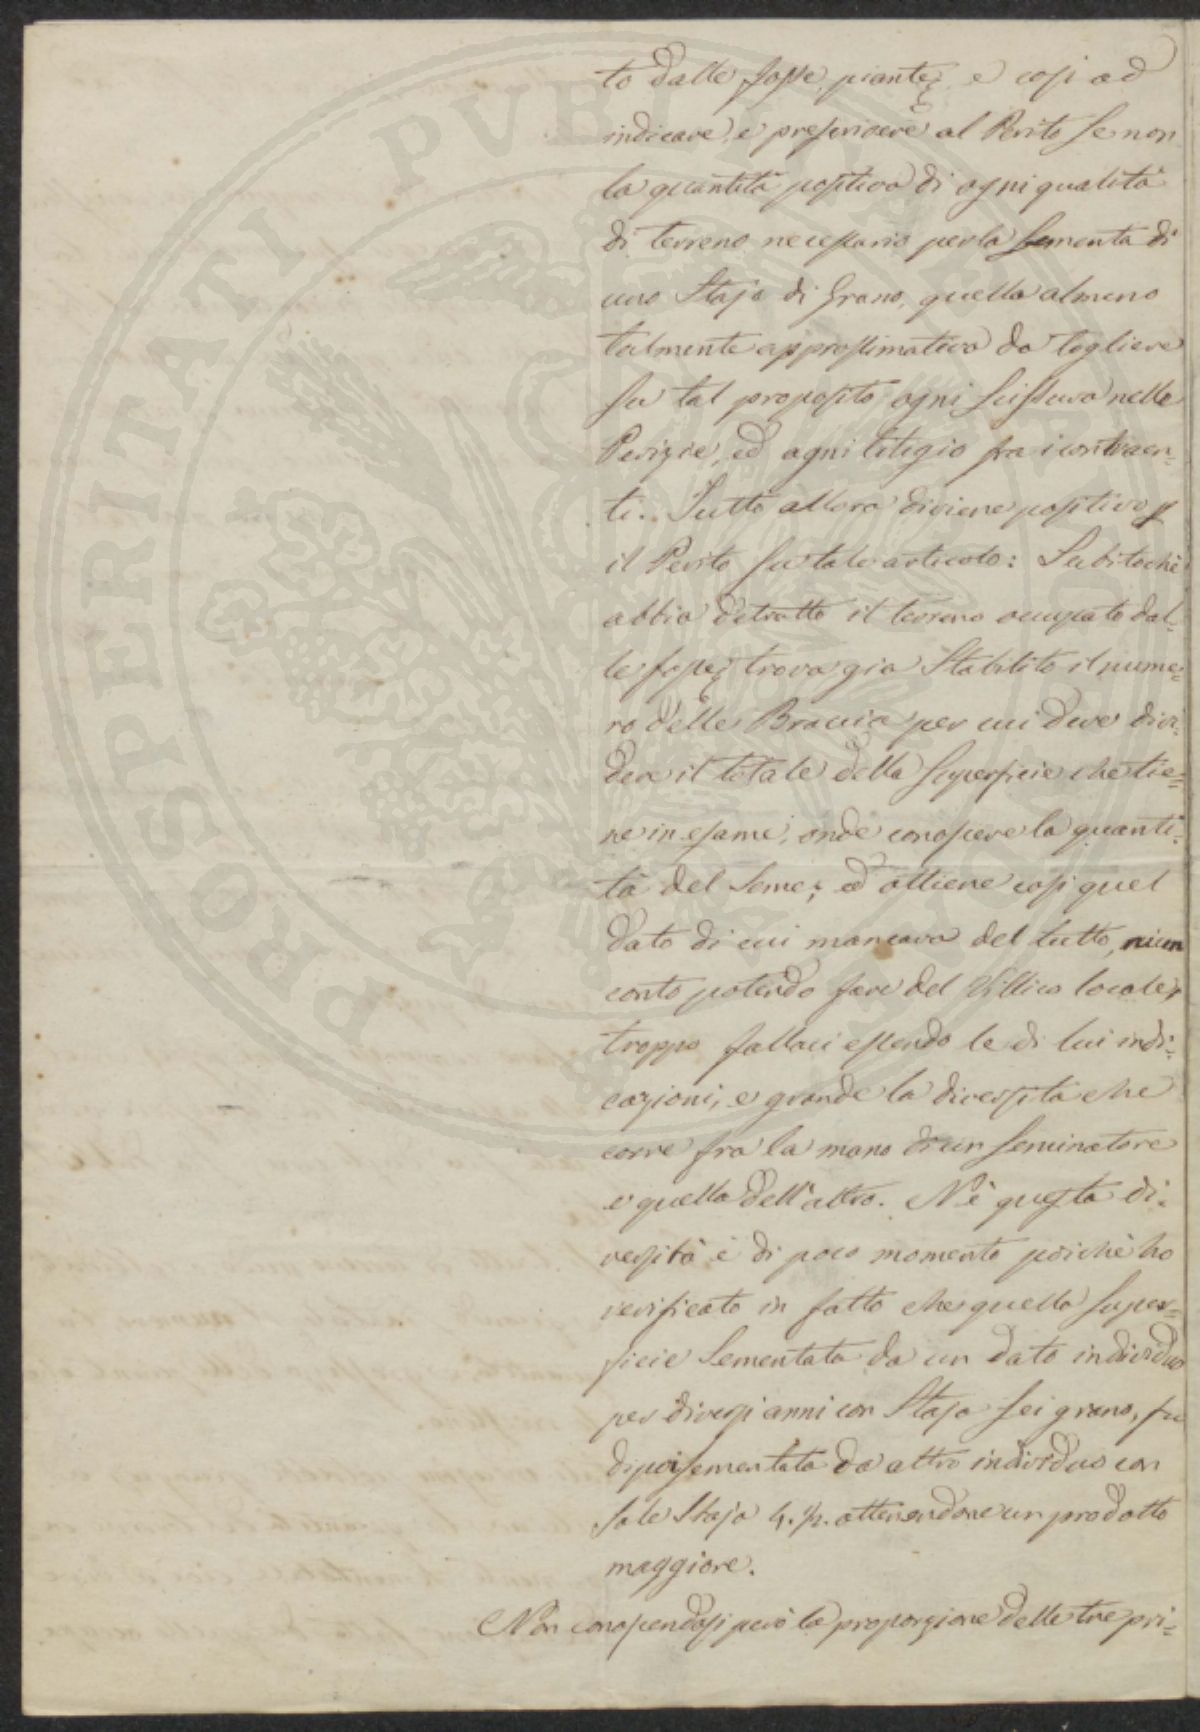 to dalle fosse, piante &, e così ad
indicare, e prescrivere al Perito se non
la quantità positiva di ogni qualità
di terreno necessario per la sementa di
uno Stajo di Grano, quella almeno
talmente approssimativa da togliere
su tal proposito ogni scissura nelle
Perizie, ed ogni litigio fra i contraen=
ti. Tutto allora diviene positivo p
il Perito su tale articolo: Subitochè
abbia detratto il terreno occupato dal=
le fosse & trova già Stabilito il nume=
ro delle Braccia per cui deve divi=
dere il totale della Superficie che tie=
ne in esame, onde conoscere la quanti=
tà del Seme; ed ottiene così quel
dato di cui mancava del tutto, niun
conto potendo fare del Villico locale,
troppo fallaci essendo le di lui indi=
cazioni, e grande la diversità che
corre fra la mano di un Seminatore
e quella dell'altro. Nè questa di=
versità è di poco momento poichè ho
verificato in fatto che quella Super=
ficie Sementata da un dato individuo
per diversi anni con Staja sei grano, fu
dipoi sementata da altro individuo con
sole Staja 4. ½. ottenendone un prodotto
maggiore.
Non conoscendosi però la proporzione delle tre pri=
PROSPERITATI PUBLICAE